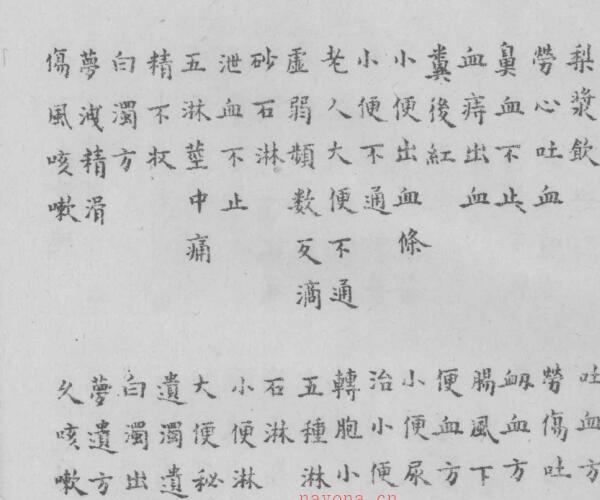 梨漿飲
勞心吐血
鼻血不止
血痔出血
糞後紅
小便出血條
小便不通
老人大便不通
虛弱頻数又滴
砂石淋
泄血不止
五淋莖中痛
精不收
白濁方
夢洩精滑
傷風咳嗽
吐血方
勞傷吐
衂血方
腸風下
便血方
小便尿
治小便
轉胞小
五種淋
石淋
小便淋
大便秘
遺濁遺
白濁出
夢遺方
久咳嗽
nayona.cn